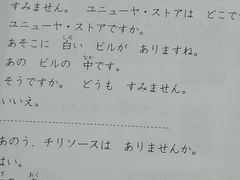 すみません。 ユニューヤ・ストアは どこで
ユニューヤ・ストアですか。
あそこに 白い ビルが ありますね。
あの ビルの 中です。
そうですか。 どうも すみません。
いいえ。
あのう、チリソースは ありませんか。
はい。